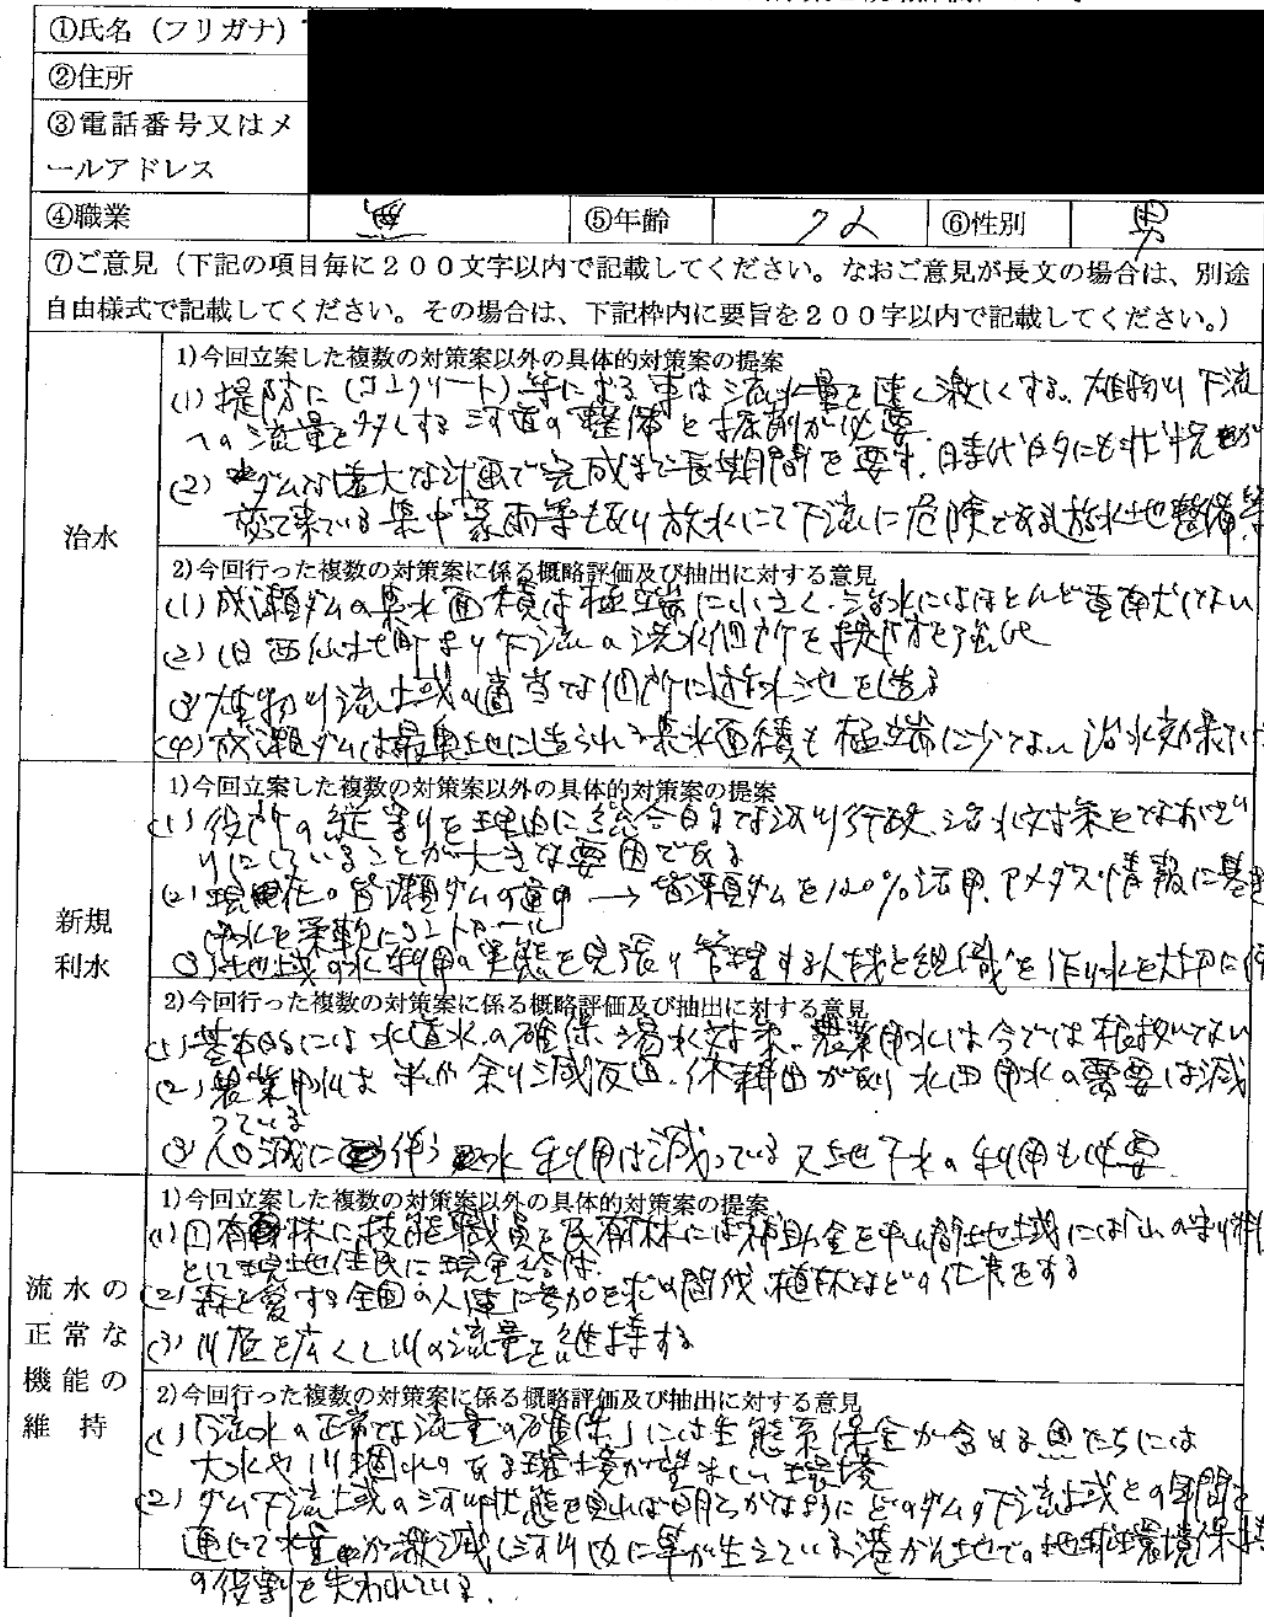 ①氏名（フリガナ）
②住所
③電話番号又はメ
ールアドレス
④職業 無 ⑤年齢 72 ⑥性別 男
⑦ご意見（下記の項目毎に２００文字以内で記載してください。なおご意見が長文の場合は、別途
自由様式で記載してください。その場合は、下記枠内に要旨を２００字以内で記載してください。）
治水
1)今回立案した複数の対策案以外の具体的対策案の提案
(1) 堤防に（コンクリート）等による事は流水量を速く激しくする。雄物川下流
への流量を多くする河道の整備と掘削が必要
(2) ダムは遠大な計画で完成まで長期間を要す、時代的にも状況が
変って来ている集中豪雨等もあり放水にて下流に危険である遊水地整備等
2)今回行った複数の対策案に係る概略評価及び抽出に対する意見
(1) 成瀬ダムの集水面積は極端に小さく、治水にはほとんど貢献しない
(2) 旧西仙北町より下流の洪水個所を堤防を強化
(3) 雄物川流域の適当な個所に遊水池を造る
(4) 成瀬ダムは最奥地に造られる集水面積も極端に少ない 治水効果
新規
利水
1)今回立案した複数の対策案以外の具体的対策案の提案
(1) 役所の縦割りを理由に総合的な河川行政、治水対策をなおざ
りにしていることが大きな要因である
(2) 現在の皆瀬ダムの運用 → 皆瀬ダムを120%活用、アメダス情報に基き
水を柔軟にコントロール
(3) 地域の水利用の実態を見張り管理する人材と組織を作り水を大切に
2)今回行った複数の対策案に係る概略評価及び抽出に対する意見
(1) 基本的には水道水の確保、渇水対策、農業用水は今では根拠はない
(2) 農業用水は米余り減反、休耕田があり水田用水の需要は減
っている
(3) 人口減に伴う水利用は減っている又地下水の利用も必要
流水の
正常な
機能の
維持
1)今回立案した複数の対策案以外の具体的対策案の提案
(1) 国有林に技能職員を民有林には補助金を中山間地域には「山の守り料
として現地住民に現金給付
(2) 森を愛する全国の人達に参加を求め間伐、植林などの仕事をする
(3) 川底を広くし川の流量を維持する
2)今回行った複数の対策案に係る概略評価及び抽出に対する意見
(1) 「流水の正常な流量の確保」には生態系保全が含める魚たちには
大水や川涸れのある環境が望ましい環境
(2) ダム下流域の河川状態を見れば明らかなようにどのダムの下流域も年間を
通して水量が激減し河川内に草が生えている 地球環境保持
の役割を失われている。